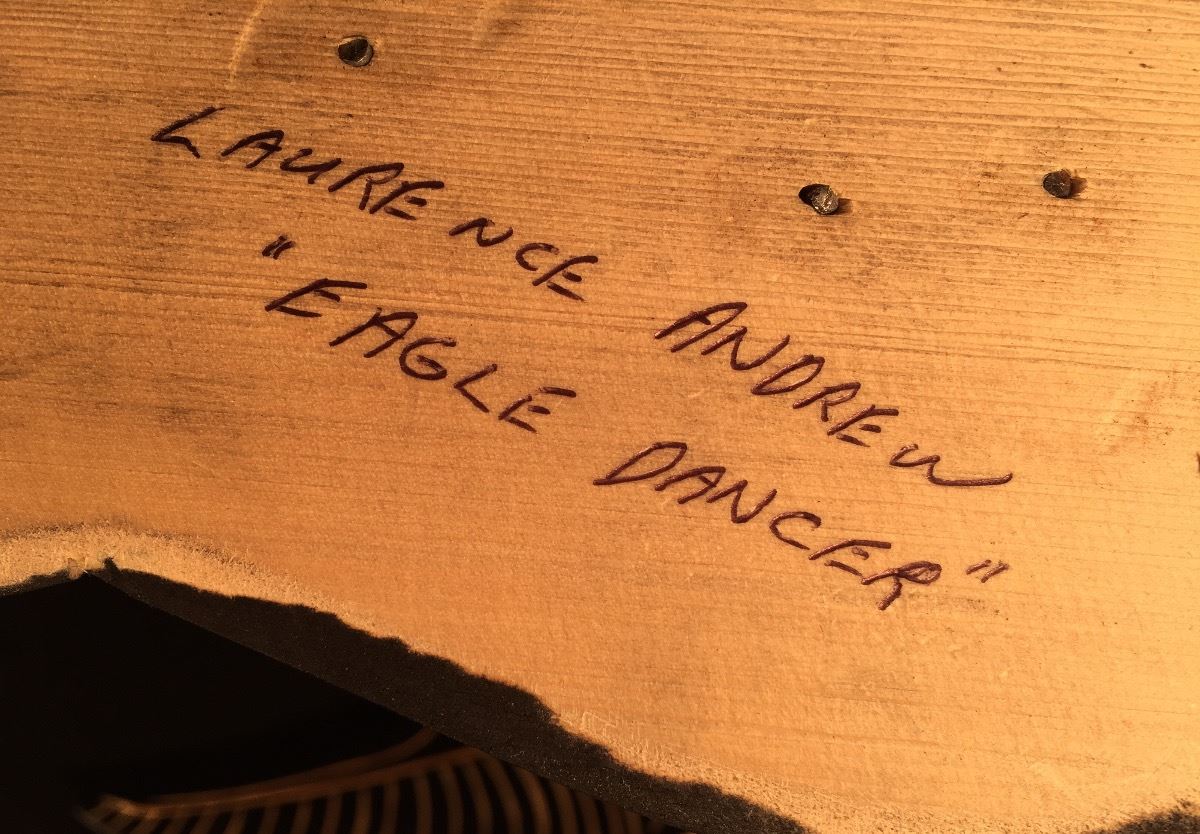 LAURENCE ANDREW
"EAGLE DANCER"